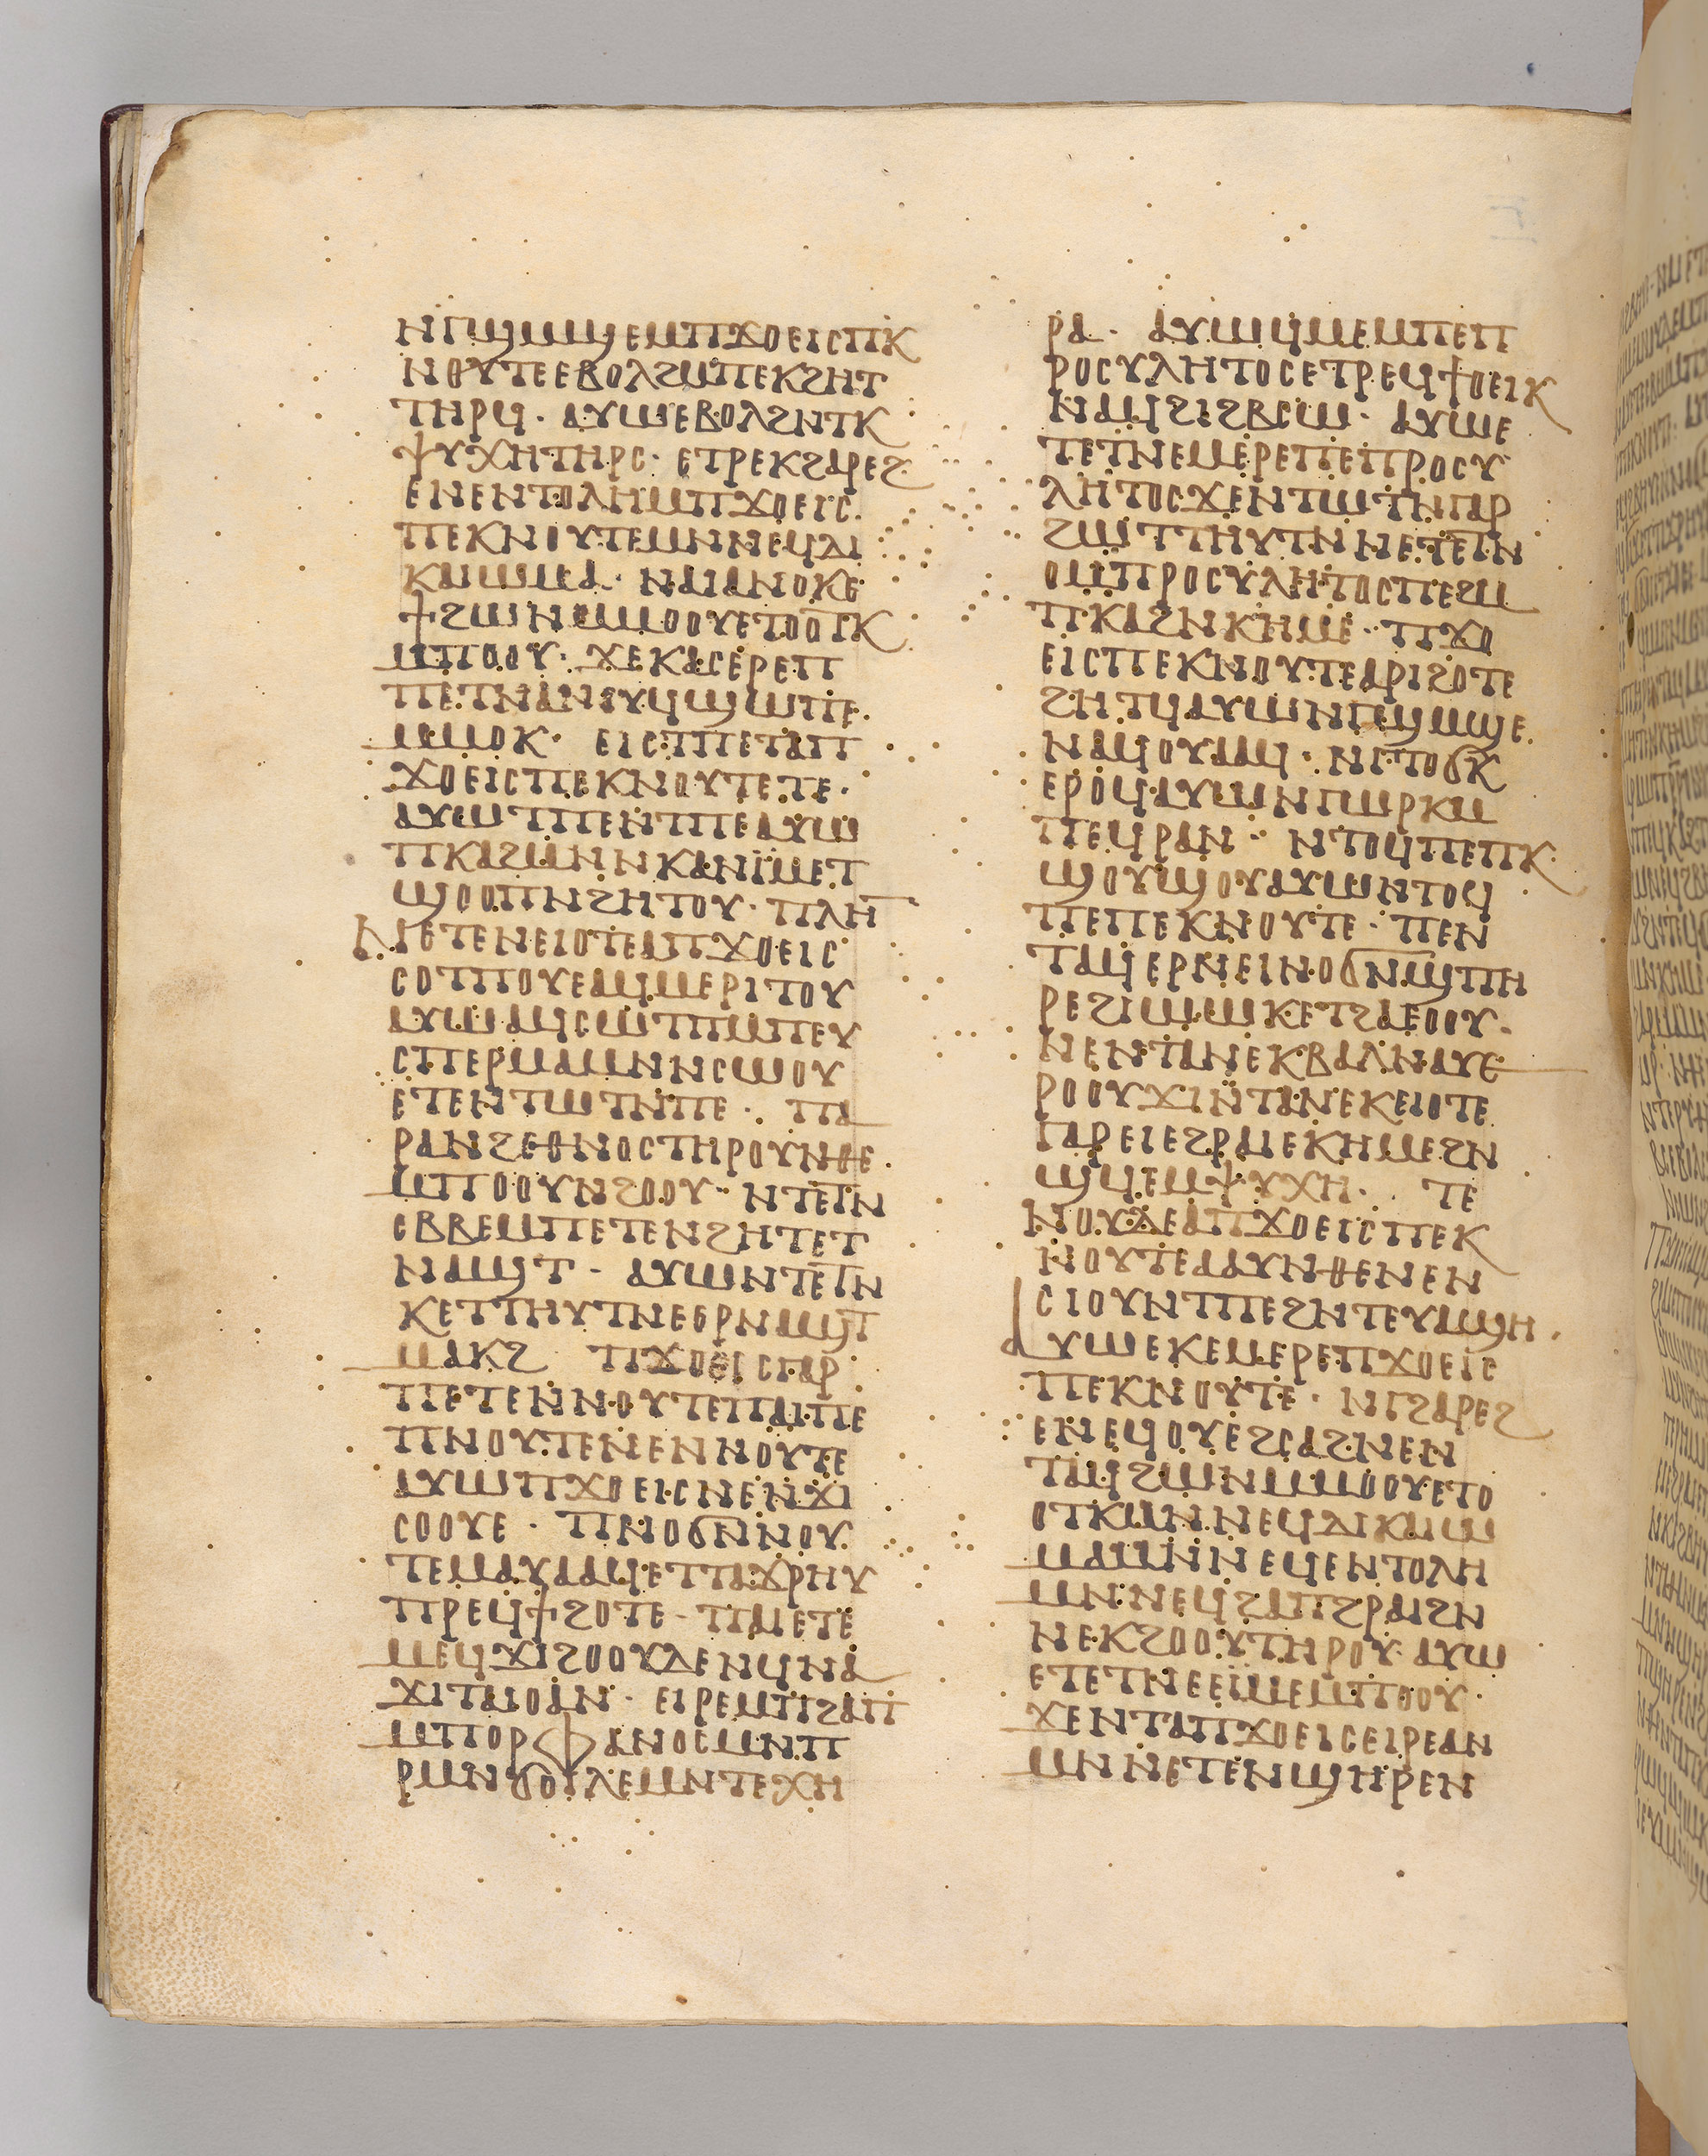 ⲛⲅϣⲙϣⲉⲙⲡϫⲟⲉⲓⲥⲡⲕ
ⲛⲟⲩⲧⲉⲉⲃⲟⲗϩⲙⲡⲉⲕϩⲏⲧ
ⲧⲏⲣϥ· ⲁⲩⲱⲉⲃⲟⲗϩⲛⲧⲕ
ⲯⲩⲭⲏⲧⲏⲣⲥ· ⲉⲧⲣⲉⲕϩⲁⲣⲉϩ
ⲉⲛⲉⲛⲧⲟⲗⲏⲙⲡϫⲟⲉⲓⲥ
ⲡⲉⲕⲛⲟⲩⲧⲉⲙⲛⲛⲉϥⲇⲓ
ⲕⲁⲓⲱⲙⲁ· ⲛⲁⲓⲁⲛⲟⲕⲉ
ϯϩⲱⲛⲙⲙⲟⲟⲩⲉⲧⲟⲟⲧⲕ
ⲙⲡⲟⲟⲩ· ϫⲉⲕⲁⲥⲉⲣⲉⲡ
ⲡⲉⲧⲛⲁⲛⲟⲩϥϣⲱⲡⲉ
ⲙⲙⲟⲕ· ⲉⲓⲥⲧⲡⲉⲧⲁⲡ
ϫⲟⲉⲓⲥⲡⲉⲕⲛⲟⲩⲧⲉⲧⲉ·
ⲁⲩⲱⲧⲡⲉⲛⲧⲡⲉⲁⲩⲱ
ⲡⲕⲁϩⲙⲛⲛⲕⲁⲛⲓⲙⲉⲧ
ϣⲟⲟⲡⲛϩⲏⲧⲟⲩ· ⲡⲗⲏ
ⲛⲛⲉⲧⲉⲛⲉⲓⲟⲧⲉⲁⲡϫⲟⲉⲓⲥ
ⲥⲟⲧⲡⲟⲩⲉⲁϥⲙⲉⲣⲓⲧⲟⲩ
ⲁⲩⲱⲁϥⲥⲱⲧⲡⲙⲡⲉⲩ
ⲥⲡⲉⲣⲙⲁⲙⲛⲛⲥⲱⲟⲩ
ⲉⲧⲉⲛⲧⲱⲧⲛⲡⲉ· ⲡⲁ
ⲣⲁⲛϩⲉⲑⲛⲟⲥⲧⲏⲣⲟⲩⲛⲑⲉ
ⲙⲡⲟⲟⲩⲛϩⲟⲟⲩ· ⲛⲧⲉⲧⲛ
ⲥⲃⲃⲉⲙⲡⲉⲧⲉⲛϩⲏⲧⲉⲧ
ⲛⲁϣⲧ· ⲁⲩⲱⲛⲧⲉⲧⲛ
ⲕⲉⲧⲧⲏⲩⲧⲛⲉⲟⲣⲛⲁϣⲧ
ⲙⲁⲕϩ ⲡϫⲟⲉⲓⲥⲅⲁⲣ
ⲡⲉⲧⲉⲛⲛⲟⲩⲧⲉⲡⲁⲓⲡⲉ
ⲡⲛⲟⲩⲧⲉⲛⲉⲛⲛⲟⲩⲧⲉ
ⲁⲩⲱⲡϫⲟⲉⲓⲥⲛⲉⲛϫⲓ
ⲥⲟⲟⲩⲉ· ⲡⲛⲟϭⲛⲛⲟⲩ
ⲧⲉⲙⲁⲩⲁⲁϥⲉⲧⲧⲁϫⲣⲏⲩ
ⲡⲣⲉϥϯϩⲟⲧⲉ· ⲡⲁⲓⲉⲧⲉ
ⲙⲉϥϫⲓϩⲟⲟⲩⲇⲉⲛϥⲛⲁ
ϫⲓⲧⲁⲓⲟⲁⲛ· ⲉⲓⲣⲉⲙⲡϩⲁⲡ
ⲙⲡⲟⲣⲫⲁⲛⲟⲥⲙⲛⲡ
ⲣⲙⲛϭⲟⲓⲗⲉⲙⲛⲧⲉⲭⲏ
ⲣⲁ· ⲁⲩⲱϥⲙⲉⲙⲡⲉⲡ
ⲣⲟⲥⲩⲗⲏⲧⲟⲥⲉⲧⲣⲉϥϯⲟⲉⲓⲕ
ⲛⲁϥϩⲓϩⲃⲥⲱ· ⲁⲩⲱⲉ
ⲧⲉⲧⲛⲉⲙⲉⲣⲉⲡⲉⲡⲣⲟⲥⲩ
ⲗⲏⲧⲟⲥϫⲉⲛⲧⲱⲧⲛⲅⲁⲣ
ϩⲱⲧⲧⲏⲩⲧⲛⲛⲉⲧⲉⲧⲛ
ⲟⲙⲡⲣⲟⲥⲩⲗⲏⲧⲟⲥⲡⲉϩⲙ
ⲡⲕⲁϩⲛⲕⲏⲙⲉ·· ⲡϫⲟ
ⲉⲓⲥⲡⲉⲕⲛⲟⲩⲧⲉⲁⲣⲓϩⲟⲧⲉ
ϩⲏⲧϥⲁⲩⲱⲛⲅϣⲙϣⲉ
ⲛⲁϥⲟⲩⲁⲁϥ· ⲛⲅⲧⲟϭⲕ
ⲉⲣⲟϥⲁⲩⲱⲛⲅⲱⲣⲕⲙ
ⲡⲉϥⲣⲁⲛ·· ⲛⲧⲟϥⲡⲉⲡⲕ
ϣⲟⲩϣⲟⲩⲁⲩⲱⲛⲧⲟϥ
ⲡⲉⲡⲉⲕⲛⲟⲩⲧⲉ· ⲡⲉⲛ
ⲧⲁϥⲉⲣⲛⲉⲓⲛⲟϭⲛϣⲡⲏ
ⲣⲉϩⲓⲱⲱⲕⲉⲧϩⲁⲉⲟⲟⲩ·
ⲛⲉⲛⲧⲁⲛⲉⲕⲃⲁⲗⲛⲁⲩⲉ
ⲣⲟⲟⲩϫⲓⲛⲧⲁⲛⲉⲕⲉⲓⲟⲧⲉ
ⲅⲁⲣⲉⲓⲉϩⲣⲁⲓⲉⲕⲏⲙⲉϩⲛ
ϣϥⲉⲙⲯⲩⲭⲏ· ⲧⲉ
ⲛⲟⲩⲇⲉⲁⲡϫⲟⲉⲓⲥⲡⲉⲕ
ⲛⲟⲩⲧⲉⲁⲁⲩⲛⲑⲉⲛⲉⲛ
ⲥⲓⲟⲩⲛⲧⲡⲉϩⲛⲧⲉⲩⲁϣⲏ
ⲁⲩⲱⲉⲕⲉⲙⲉⲣⲉⲡϫⲟⲉⲓⲥ
ⲡⲉⲕⲛⲟⲩⲧⲉ· ⲛⲅϩⲁⲣⲉϩ
ⲉⲛⲉϥⲟⲩⲉϩⲥⲁϩⲛⲉⲛ
ⲧⲁϥϩⲱⲛⲙⲙⲟⲟⲩⲉⲧⲟ
ⲟⲧⲕⲙⲛⲛⲉϥⲇⲓⲕⲁⲓⲱ
ⲙⲁⲙⲛⲛⲉϥⲉⲛⲧⲟⲗⲏ
ⲙⲛⲛⲉϥϩⲁⲡϩⲣⲁⲓϩⲛ
ⲛⲉⲕϩⲟⲟⲩⲧⲏⲣⲟⲩ· ⲁⲩⲱ
ⲉⲧⲉⲧⲛⲉⲉⲓⲙⲉⲙⲡⲟⲟⲩ·
ϫⲉⲛⲧⲁⲡϫⲟⲉⲓⲥⲉⲓⲣⲉⲁⲛ
ⲙⲛⲛⲉⲧⲉⲛϣⲏⲣⲉⲛ